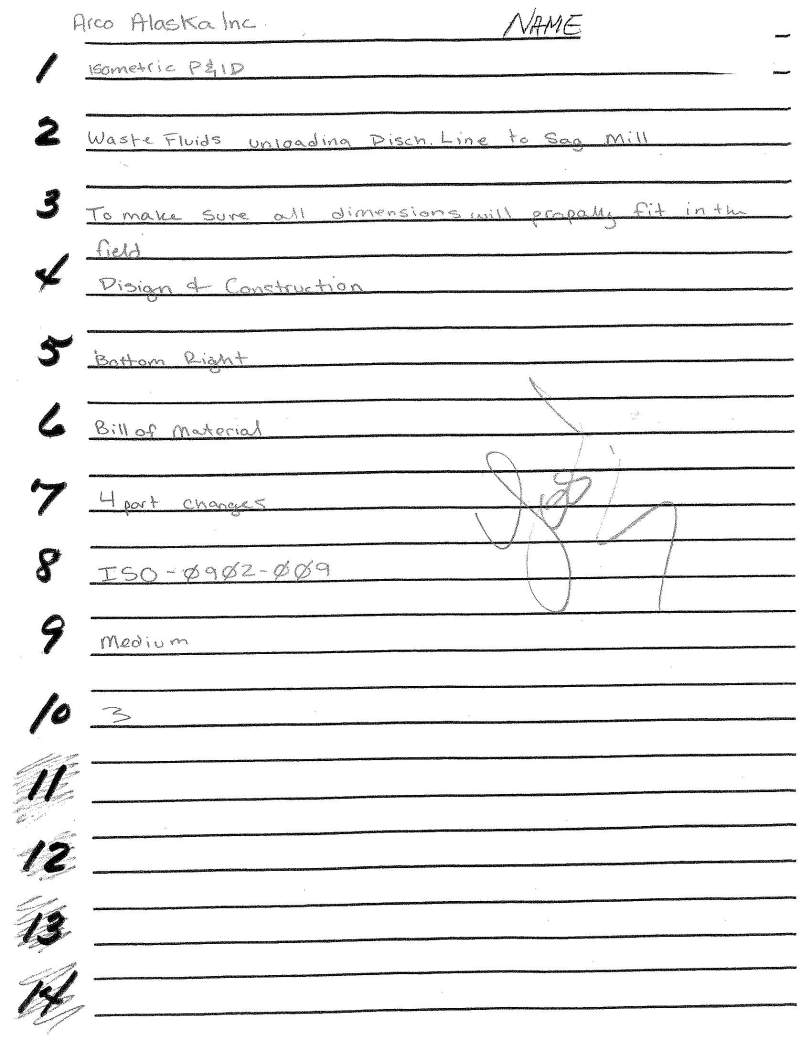 Arco Alaska Inc. NAME
1 Isometric P&ID
2 Waste Fluids unloading Disch. Line to Sag Mill
3 To make sure all dimensions will propally fit in the
field
4 Disign & Construction
5 Bottom Right
6 Bill of Material
7 4 part changes
8 ISO-0902-009
9 Medium
10 3
11
12
13
14